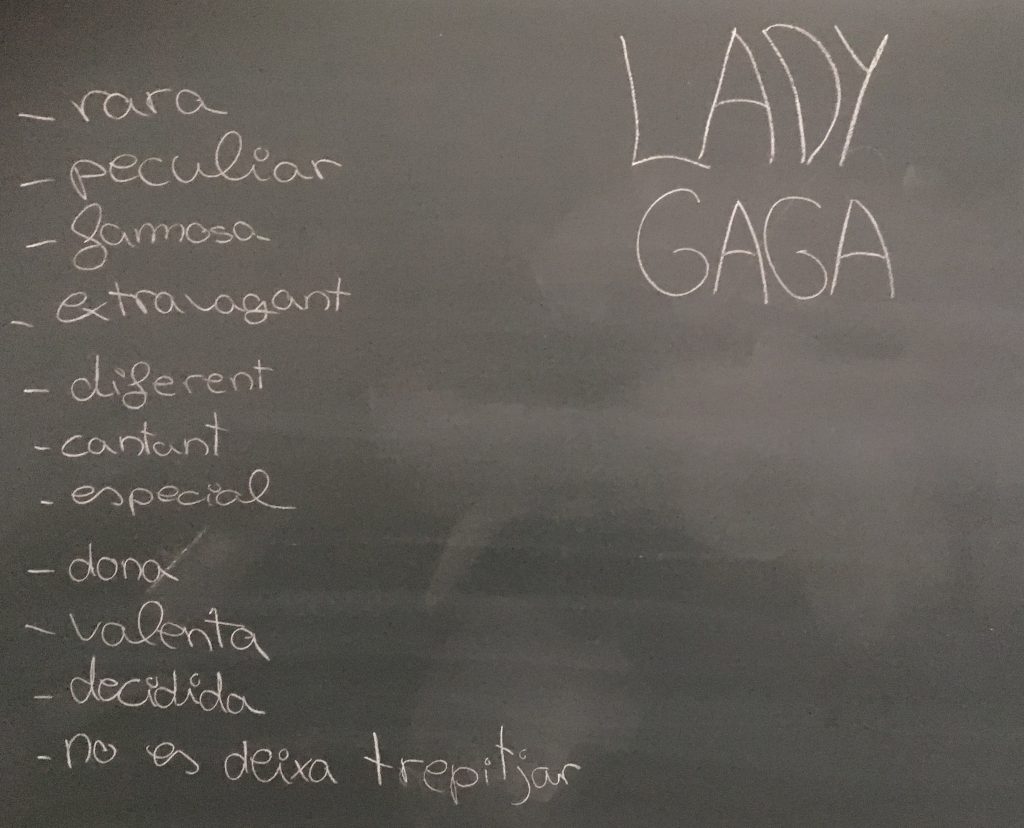 LADY
GAGA
- rara
- peculiar
- famosa
- extravagant
- diferent
- cantant
- especial
- dona
- valenta
- decidida
- no es deixa trepitjar